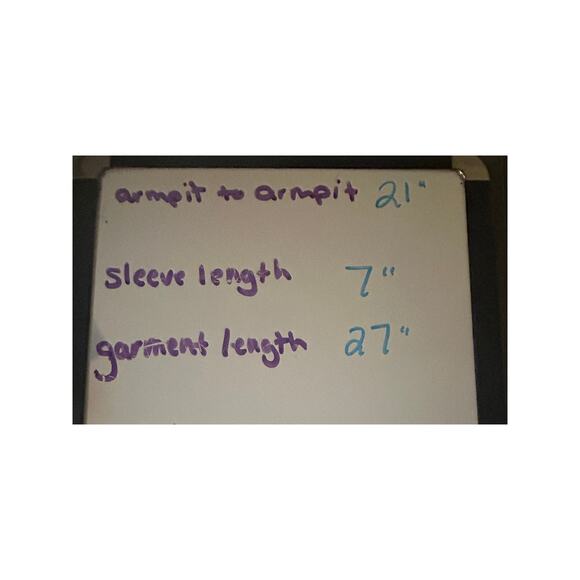 armpit to armpit 21"
sleeve length 7"
garment length 27"